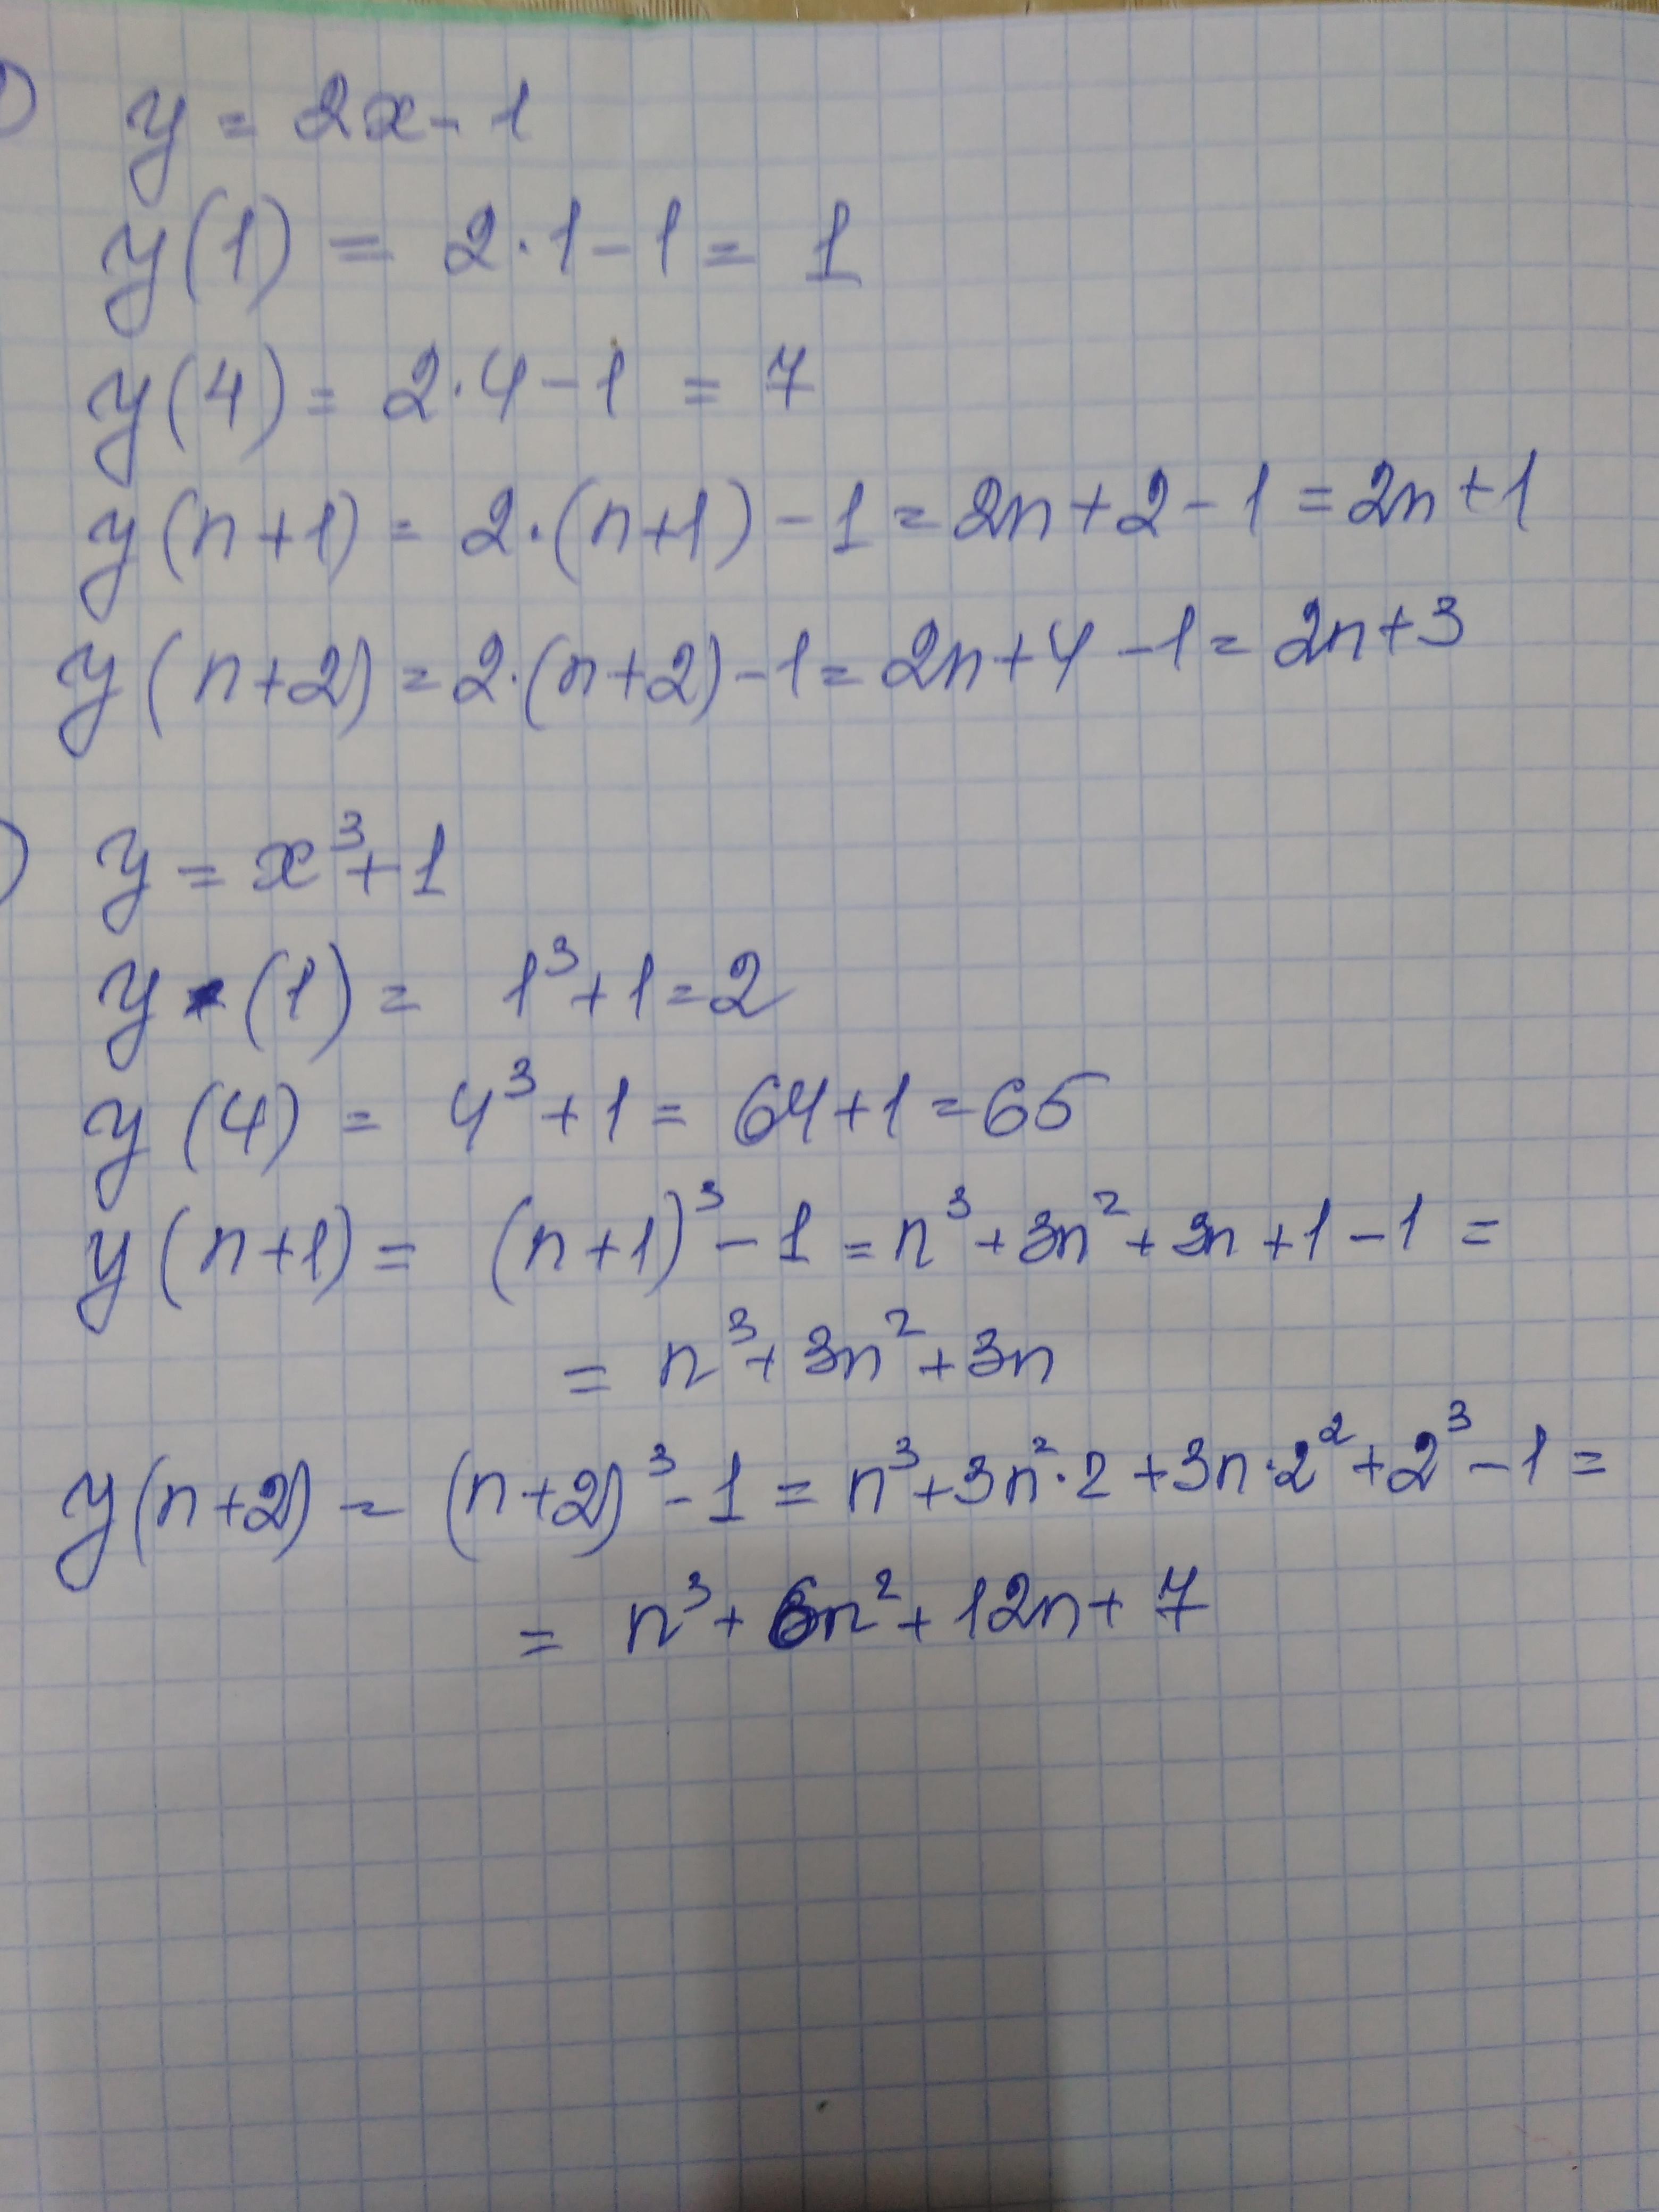 ) y = 2x - 1
y(1) = 2·1 - 1 = 1
y(4) = 2·4 - 1 = 7
y(n+1) = 2·(n+1) - 1 = 2n + 2 - 1 = 2n + 1
y(n+2) = 2·(n+2) - 1 = 2n + 4 - 1 = 2n + 3
) y = x³ + 1
y (1) = 1³ + 1 = 2
y (4) = 4³ + 1 = 64 + 1 = 65
y (n+1) = (n+1)³ - 1 = n³ + 3n² + 3n + 1 - 1 =
= n³ + 3n² + 3n
y(n+2) = (n+2)³ - 1 = n³ + 3n²·2 + 3n·2² + 2³ - 1 =
= n³ + 6n² + 12n + 7